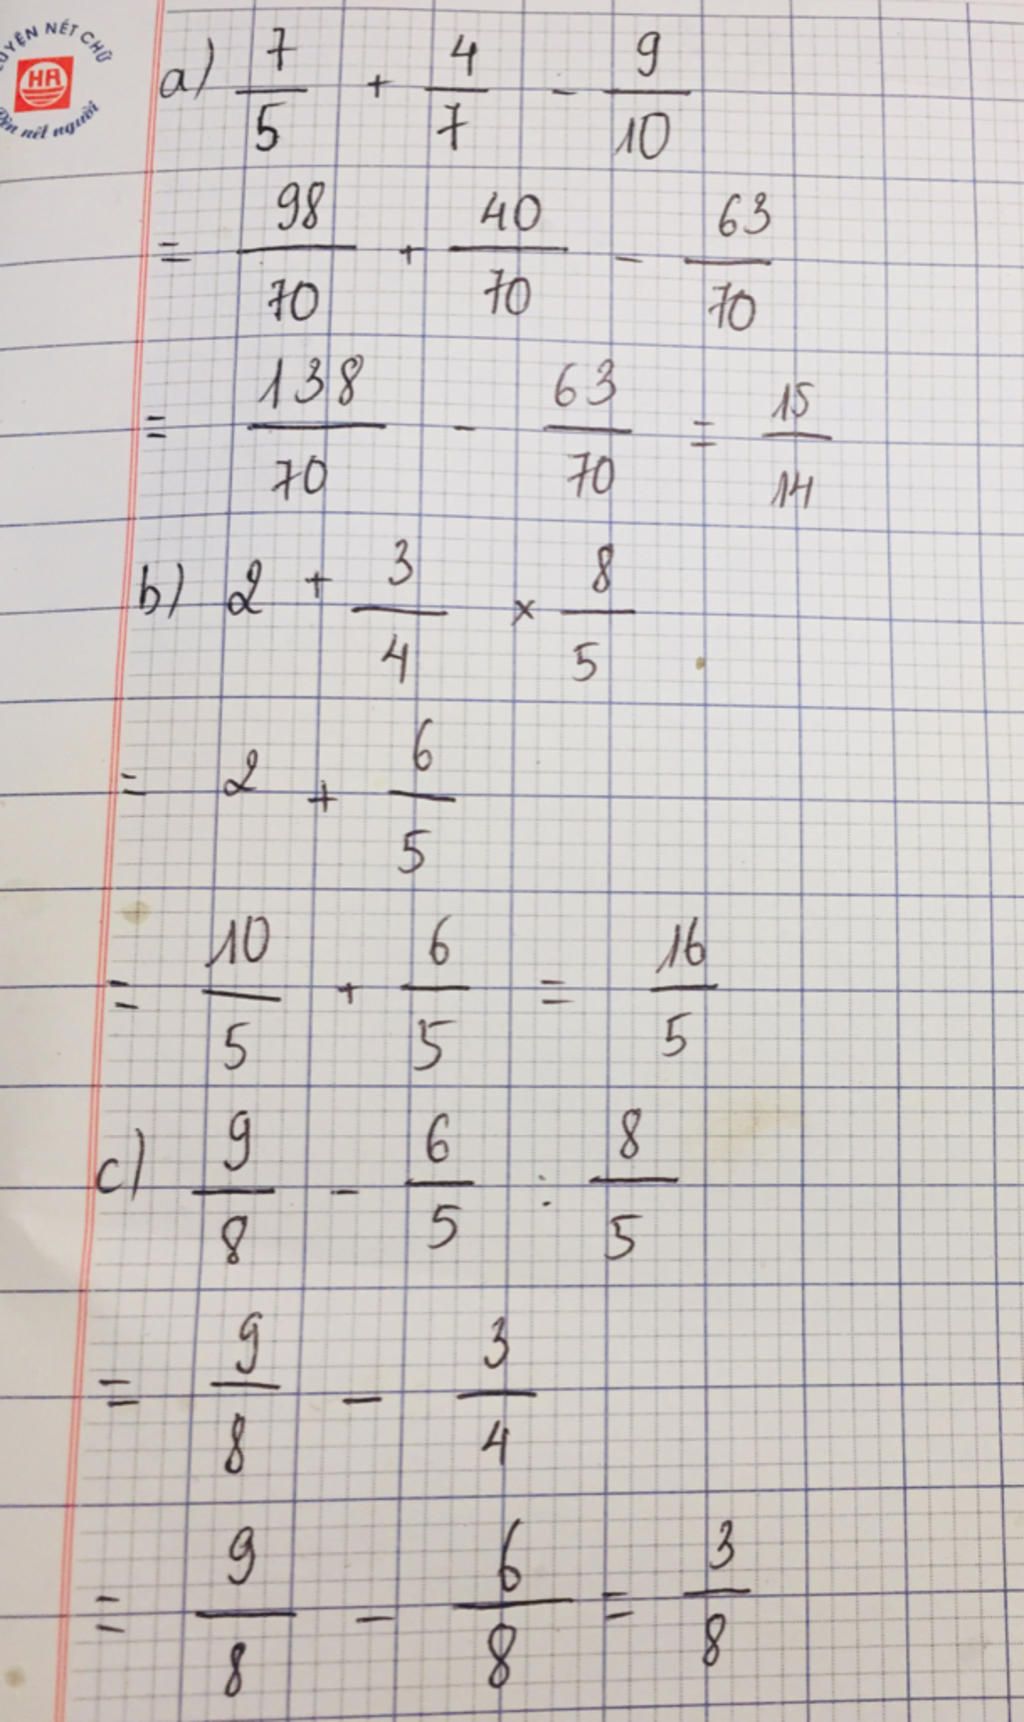 LUYỆN NÉT CHỮ
HA
Rèn nết người
a) 7/5 + 4/7 - 9/10
= 98/70 + 40/70 - 63/70
= 138/70 - 63/70 = 15/14
b) 2 + 3/4 × 8/5
= 2 + 6/5
= 10/5 + 6/5 = 16/5
c) 9/8 - 6/5 : 8/5
= 9/8 - 3/4
= 9/8 - 6/8 = 3/8